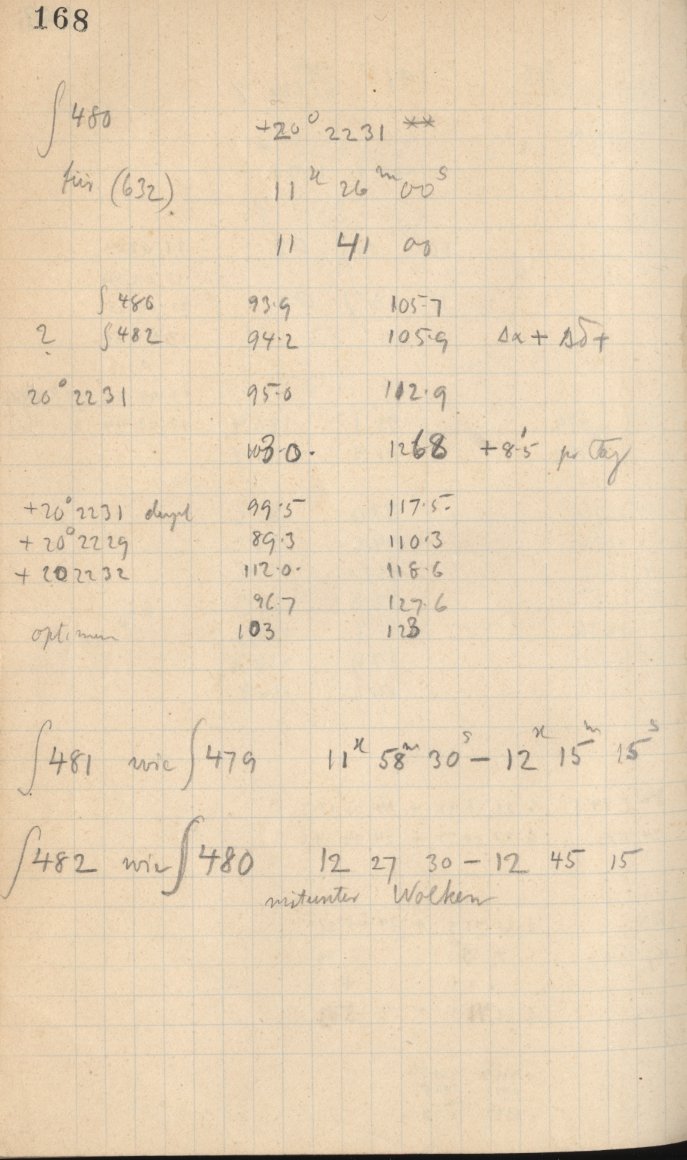 168
∫ 480 +20° 2231 **
für (632) 11ʰ 26ᵐ 00ˢ
11 41 00
∫ 480 93.9 105.7
? ∫ 482 94.2 105.9 Δα + Δδ +
20° 2231 95.0 112.9
103.0. 126.8 +8'.5 pr Tag
+20° 2231 99.5 117.5
+20° 2229 89.3 110.3
+202232 112.0 118.6
96.7 127.6
optimum 103 123
∫ 481 wie ∫ 479 11ʰ 58ᵐ 30ˢ – 12ʰ 15ᵐ 15ˢ
∫ 482 wie ∫ 480 12 27 30 – 12 45 15
mitunter Wolken